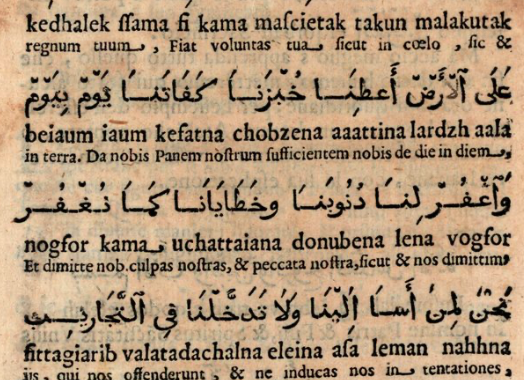 kedhalek ſſama fi kama maſcietak takun malakutak
regnum tuum, Fiat voluntas tua sicut in cœlo, sic &
عَلَى اَلْأَرْضْ أَعطِنَا خُبْزَنَا كَفَاتَنَا يَوْمْ بِيَوْمْ
beiaum iaum kefatna chobzena aaattina lardzh aala
in terra. Da nobis Panem noſtrum ſufficientem nobis de die in diem,
وَاَغْفُرْ لِنَا دُنُوبَنَا وخَطَايَانَا كَمَا نُغْفُرْ
nogfor kama uchattaiana donubena lena vogfor
Et dimitte nob. culpas noſtras, & peccata noſtra, ſicut & nos dimittim9
نَحْنُ لِمَنْ أَسَا اَلَيْنَا وَلَا تَدَخَّلْنَا فِي اَلتَّجَارِيبْ
fittagiarib valatadachalna eleina aſa leman nahhna
iis, qui nos offenderunt, & ne inducas nos in tentationes,